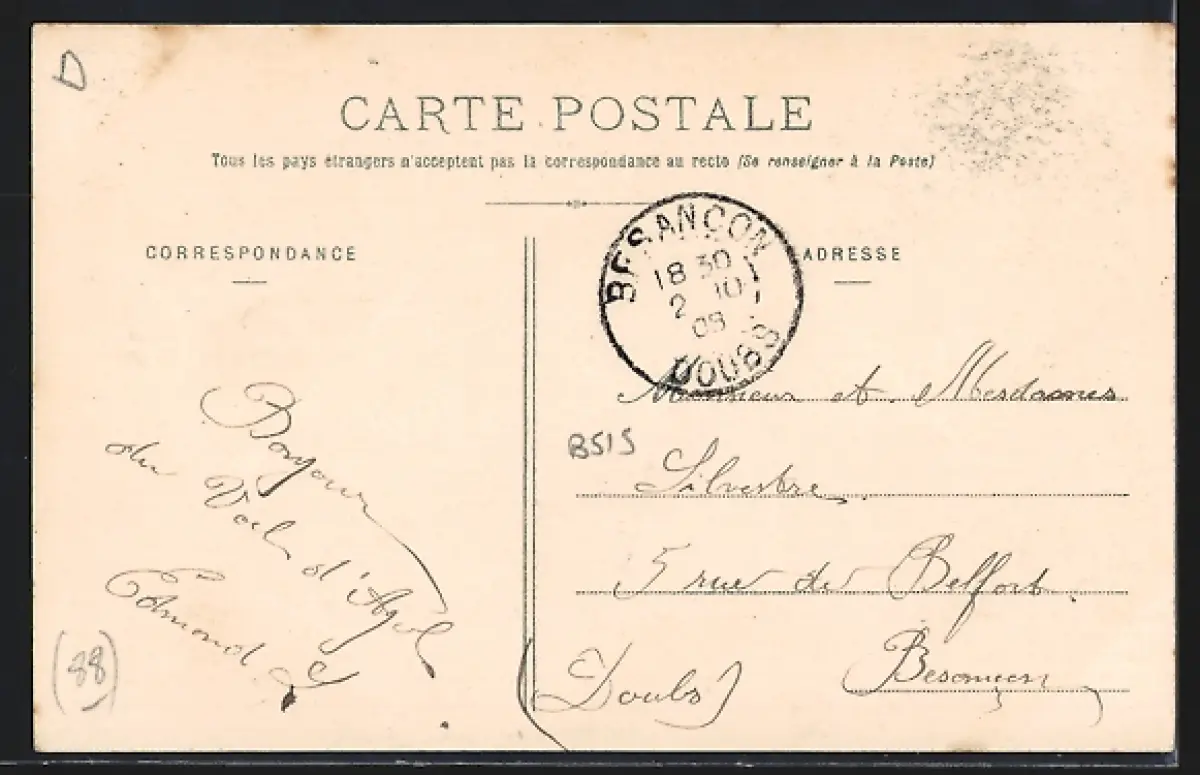 D
CARTE POSTALE
Tous les pays étrangers n'acceptent pas la correspondance au recto (Se renseigner à la Poste)
CORRESPONDANCE
ADRESSE
BESANÇON
18 30
2 10
08
DOUBS
Bonjour
du Val d'Ajol
Edmond
(88)
Monsieur et Mesdames
B515
Silvestre
5 rue de Belfort.
Besançon
(Doubs)